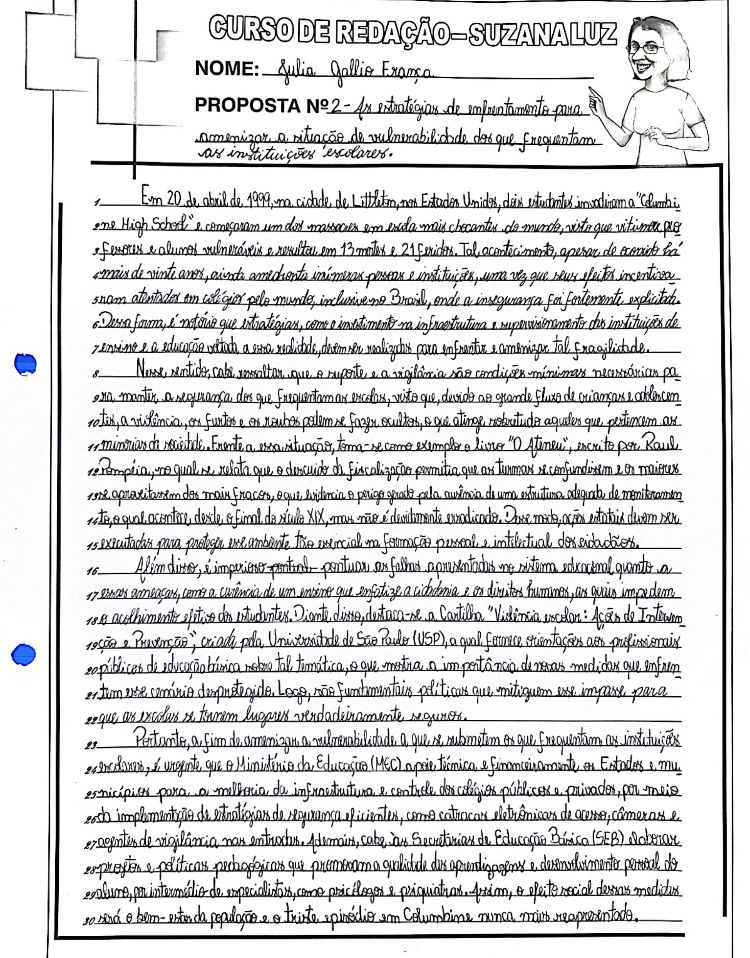 CURSO DE REDAÇÃO-SUZANA LUZ
NOME: Julia Gallio França
PROPOSTA Nº 2 - As estratégias de enfrentamento para
amenizar a situação de vulnerabilidade dos que frequentam
as instituições escolares.
1 Em 20 de abril de 1999, na cidade de Littleton, nos Estados Unidos, dois estudantes invadiram a "Columbi
2 ne High School" e começaram um dos massacres em escola mais chocantes do mundo, visto que vitimou pro
3 fessores e alunos vulneráveis e resultou em 13 mortes e 21 feridos. Tal acontecimento, apesar de ocorrido há
4 mais de vinte anos, ainda amedronta inúmeras pessoas e instituições, uma vez que seus efeitos incentiva
5 ram atentados em colégios pelo mundo, inclusive no Brasil, onde a insegurança foi fortemente explicitada.
6 Dessa forma, é notório que estratégias, como o investimento na infraestrutura e supervisionamento das instituições de
7 ensino e a educação voltada a essa realidade, devem ser realizadas para enfrentar e amenizar tal fragilidade.
8 Nesse sentido, cabe ressaltar que o suporte e a vigilância são condições mínimas necessárias pa
9 ra manter a segurança dos que frequentam as escolas, visto que, devido ao grande fluxo de crianças e adolescen
10 tes, a violência, os furtos e os roubos podem se fazer ocultos, o que atinge sobretudo aqueles que pertencem as
11 minorias da sociedade. Frente a essa situação, toma-se como exemplo o livro "O Ateneu", escrito por Raul
12 Pompéia, no qual se relata que o descuido da fiscalização permitia que as turmas se confundissem e os maiores
13 se aproveitassem dos mais fracos, o que evidencia o perigo gerado pela ausência de uma estrutura adequada de monitoramen
14 to, o qual acontece desde o final do século XIX, mas não é devidamente erradicado. Desse modo, ações estatais devem ser
15 executadas para proteger esse ambiente tão essencial na formação pessoal e intelectual dos cidadãos.
16 Além disso, é imperioso pontual pontuar as falhas apresentadas no sistema educacional quanto a
17 essas ameaças, como a carência de um ensino que enfatize a cidadania e os direitos humanos, as quais impedem
18 o acolhimento efetivo dos estudantes. Diante disso, destaca-se a Cartilha "Violência escolar: Ações de Interven
19 ção e Prevenção", criada pela Universidade de São Paulo (USP), a qual fornece orientações aos profissionais
20 públicos de educação básica sobre tal temática, o que mostra a importância de novas medidas que enfren
21 tem esse cenário desprotegido. Logo, são fundamentais políticas que mitiguem esse impasse para
22 que as escolas se tornem lugares verdadeiramente seguros.
23 Portanto, a fim de amenizar a vulnerabilidade a que se submetem os que frequentam as instituições
24 escolares, é urgente que o Ministério da Educação (MEC) apoie técnica e financeiramente os Estados e mu
25 nicípios para a melhoria da infraestrutura e controle dos colégios públicos e privados, por meio
26 da implementação de estratégias de segurança eficientes, como catracas eletrônicas de acesso, câmeras e
27 agentes de vigilância nas entradas. Ademais, cabe às Secretarias de Educação Básica (SEB) elaborar
28 projetos e políticas pedagógicas que promovam a qualidade das aprendizagens e desenvolvimento pessoal do
29 aluno, por intermédio de especialistas, como psicólogos e psiquiatras. Assim, o efeito social dessas medidas
30 será o bem-estar da população e o triste episódio em Columbine nunca mais reapresentado.